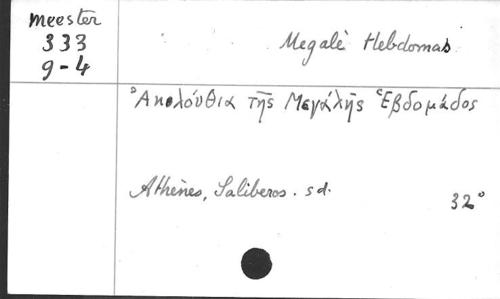 Meester
333
9-4
Megalè Hebdomas
Ἀκολόυθια τῆς Μεγάλῆς Ἑβδομάδος
Athènes, Saliberos. sd.
32°